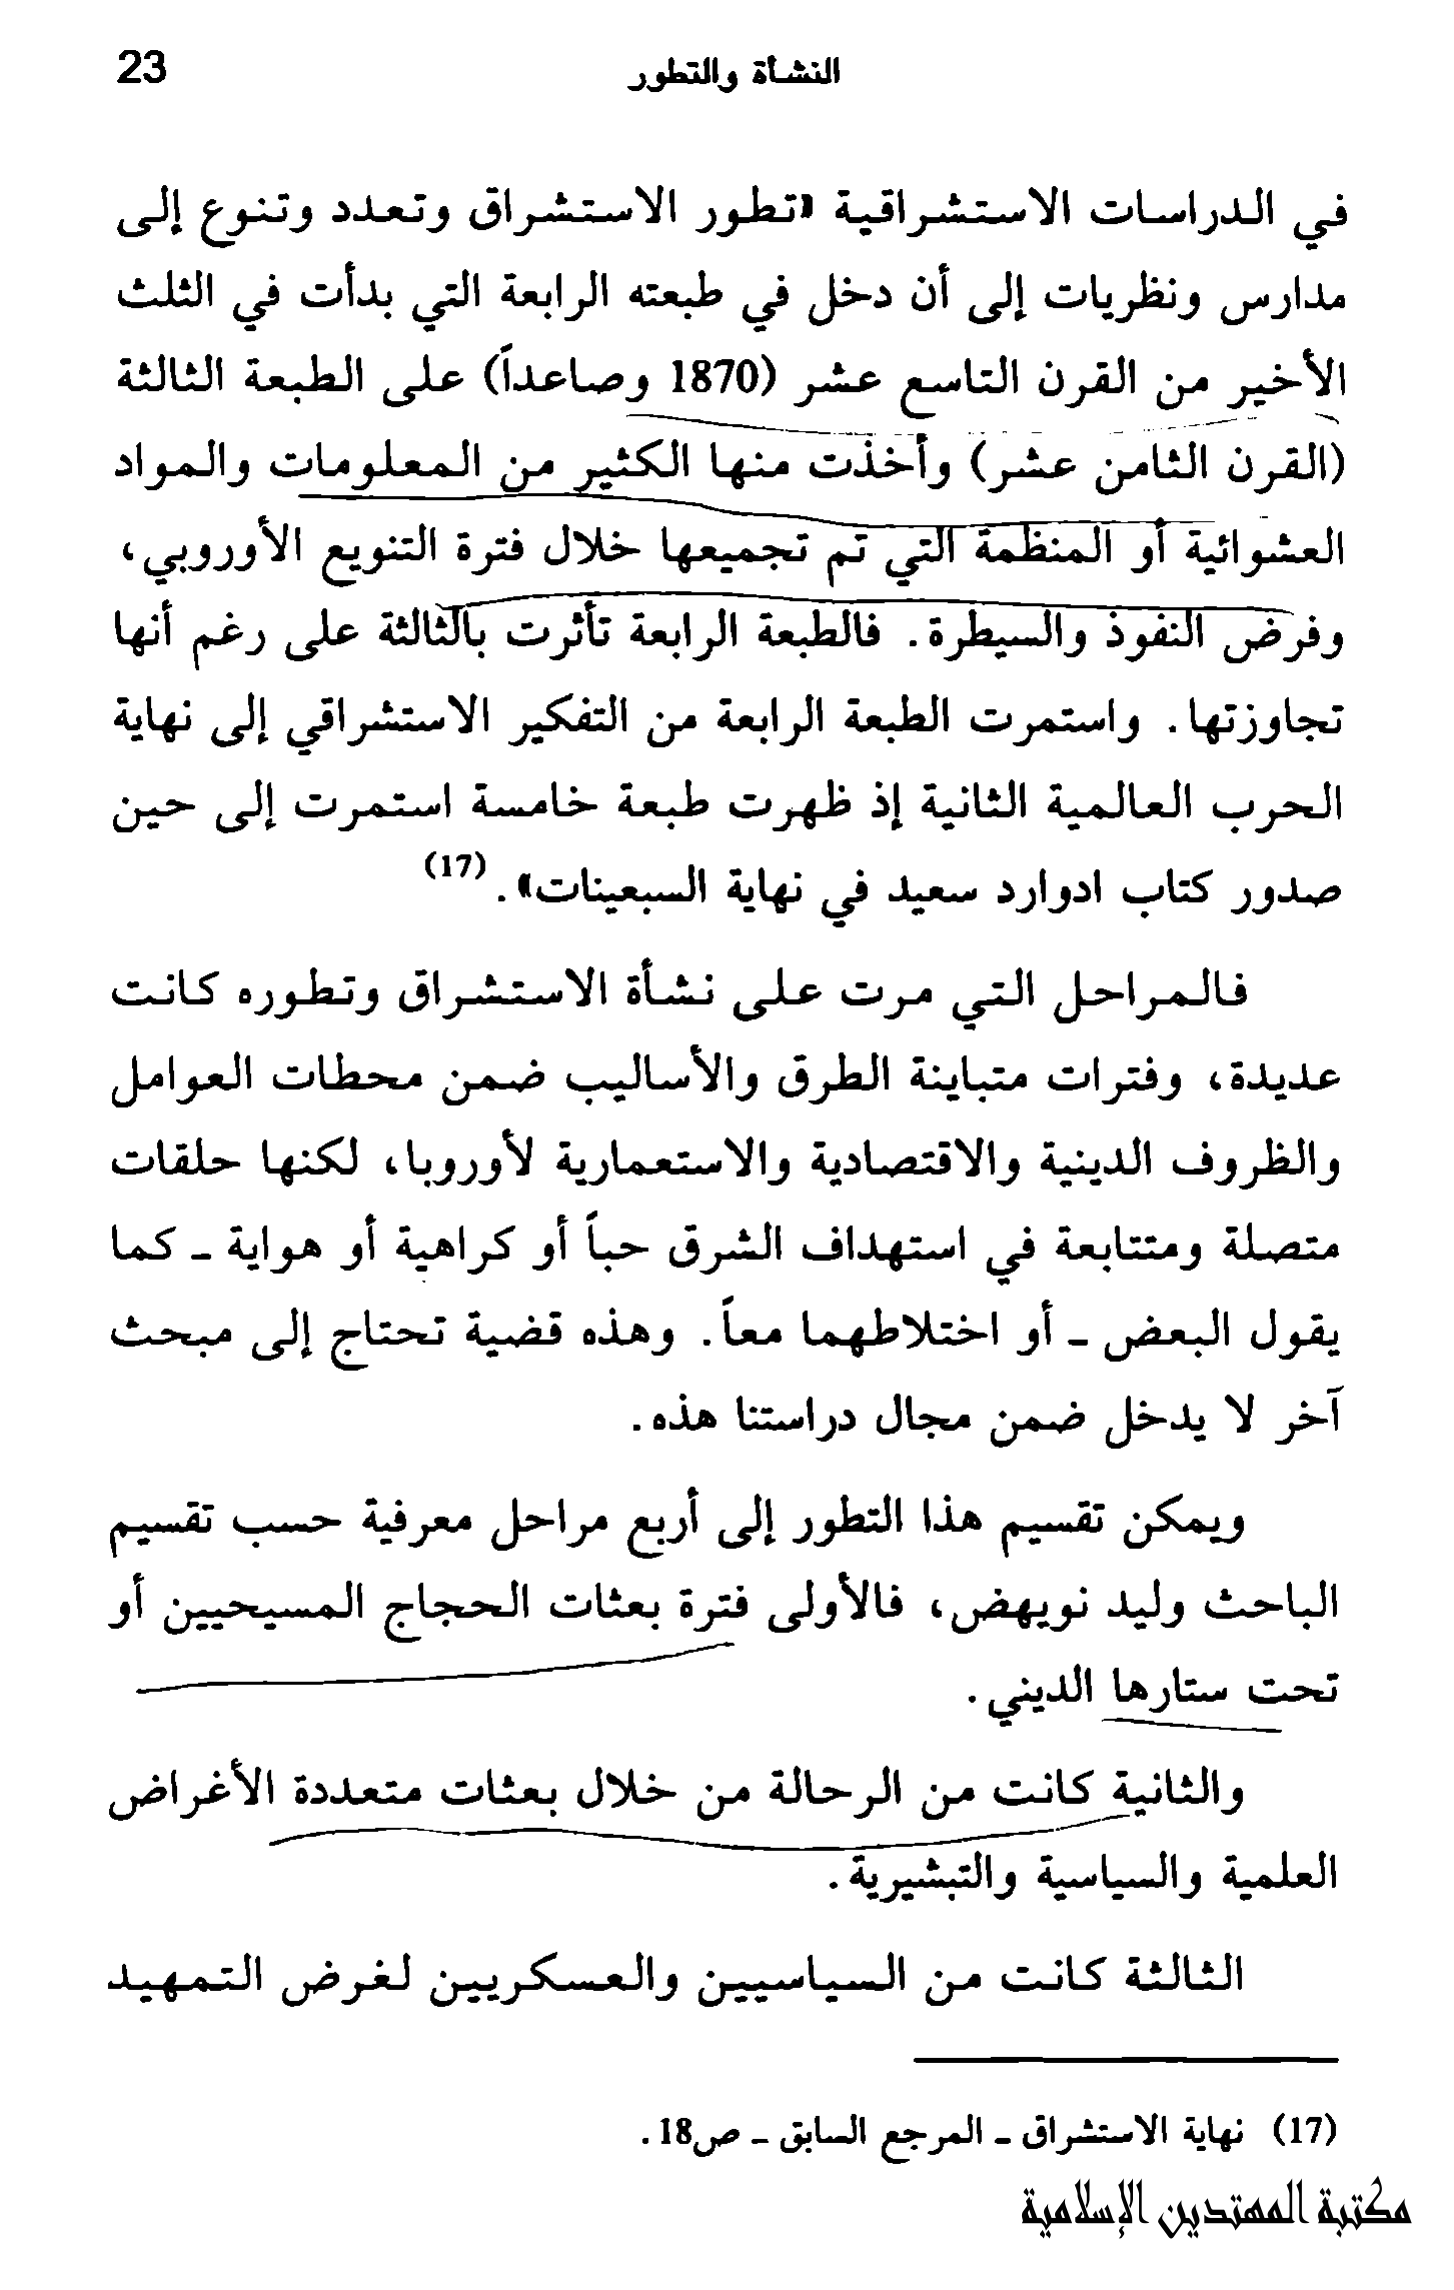 النشأة والتطور 23
في الدراسات الاستشراقية «تطور الاستشراق وتعدد وتنوع إلى
مدارس ونظريات إلى أن دخل في طبعته الرابعة التي بدأت في الثلث
الأخير من القرن التاسع عشر (1870 وصاعداً) على الطبعة الثالثة
(القرن الثامن عشر) وأخذت منها الكثير من المعلومات والمواد
العشوائية أو المنظمة التي تم تجميعها خلال فترة التنويع الأوروبي،
وفرض النفوذ والسيطرة. فالطبعة الرابعة تأثرت بالثالثة على رغم أنها
تجاوزتها. واستمرت الطبعة الرابعة من التفكير الاستشراقي إلى نهاية
الحرب العالمية الثانية إذ ظهرت طبعة خامسة استمرت إلى حين
صدور كتاب ادوارد سعيد في نهاية السبعينات». (17)
فالمراحل التي مرت على نشأة الاستشراق وتطوره كانت
عديدة، وفترات متباينة الطرق والأساليب ضمن محطات العوامل
والظروف الدينية والاقتصادية والاستعمارية لأوروبا، لكنها حلقات
متصلة ومتتابعة في استهداف الشرق حباً أو كراهية أو هواية - كما
يقول البعض - أو اختلاطهما معاً. وهذه قضية تحتاج إلى مبحث
آخر لا يدخل ضمن مجال دراستنا هذه.
ويمكن تقسيم هذا التطور إلى أربع مراحل معرفية حسب تقسيم
الباحث وليد نويهض، فالأولى فترة بعثات الحجاج المسيحيين أو
تحت ستارها الديني.
والثانية كانت من الرحالة من خلال بعثات متعددة الأغراض
العلمية والسياسية والتبشيرية.
الثالثة كانت من السياسيين والعسكريين لغرض التمهيد
(17) نهاية الاستشراق - المرجع السابق - ص18.
مكتبة المهتدين الإسلامية